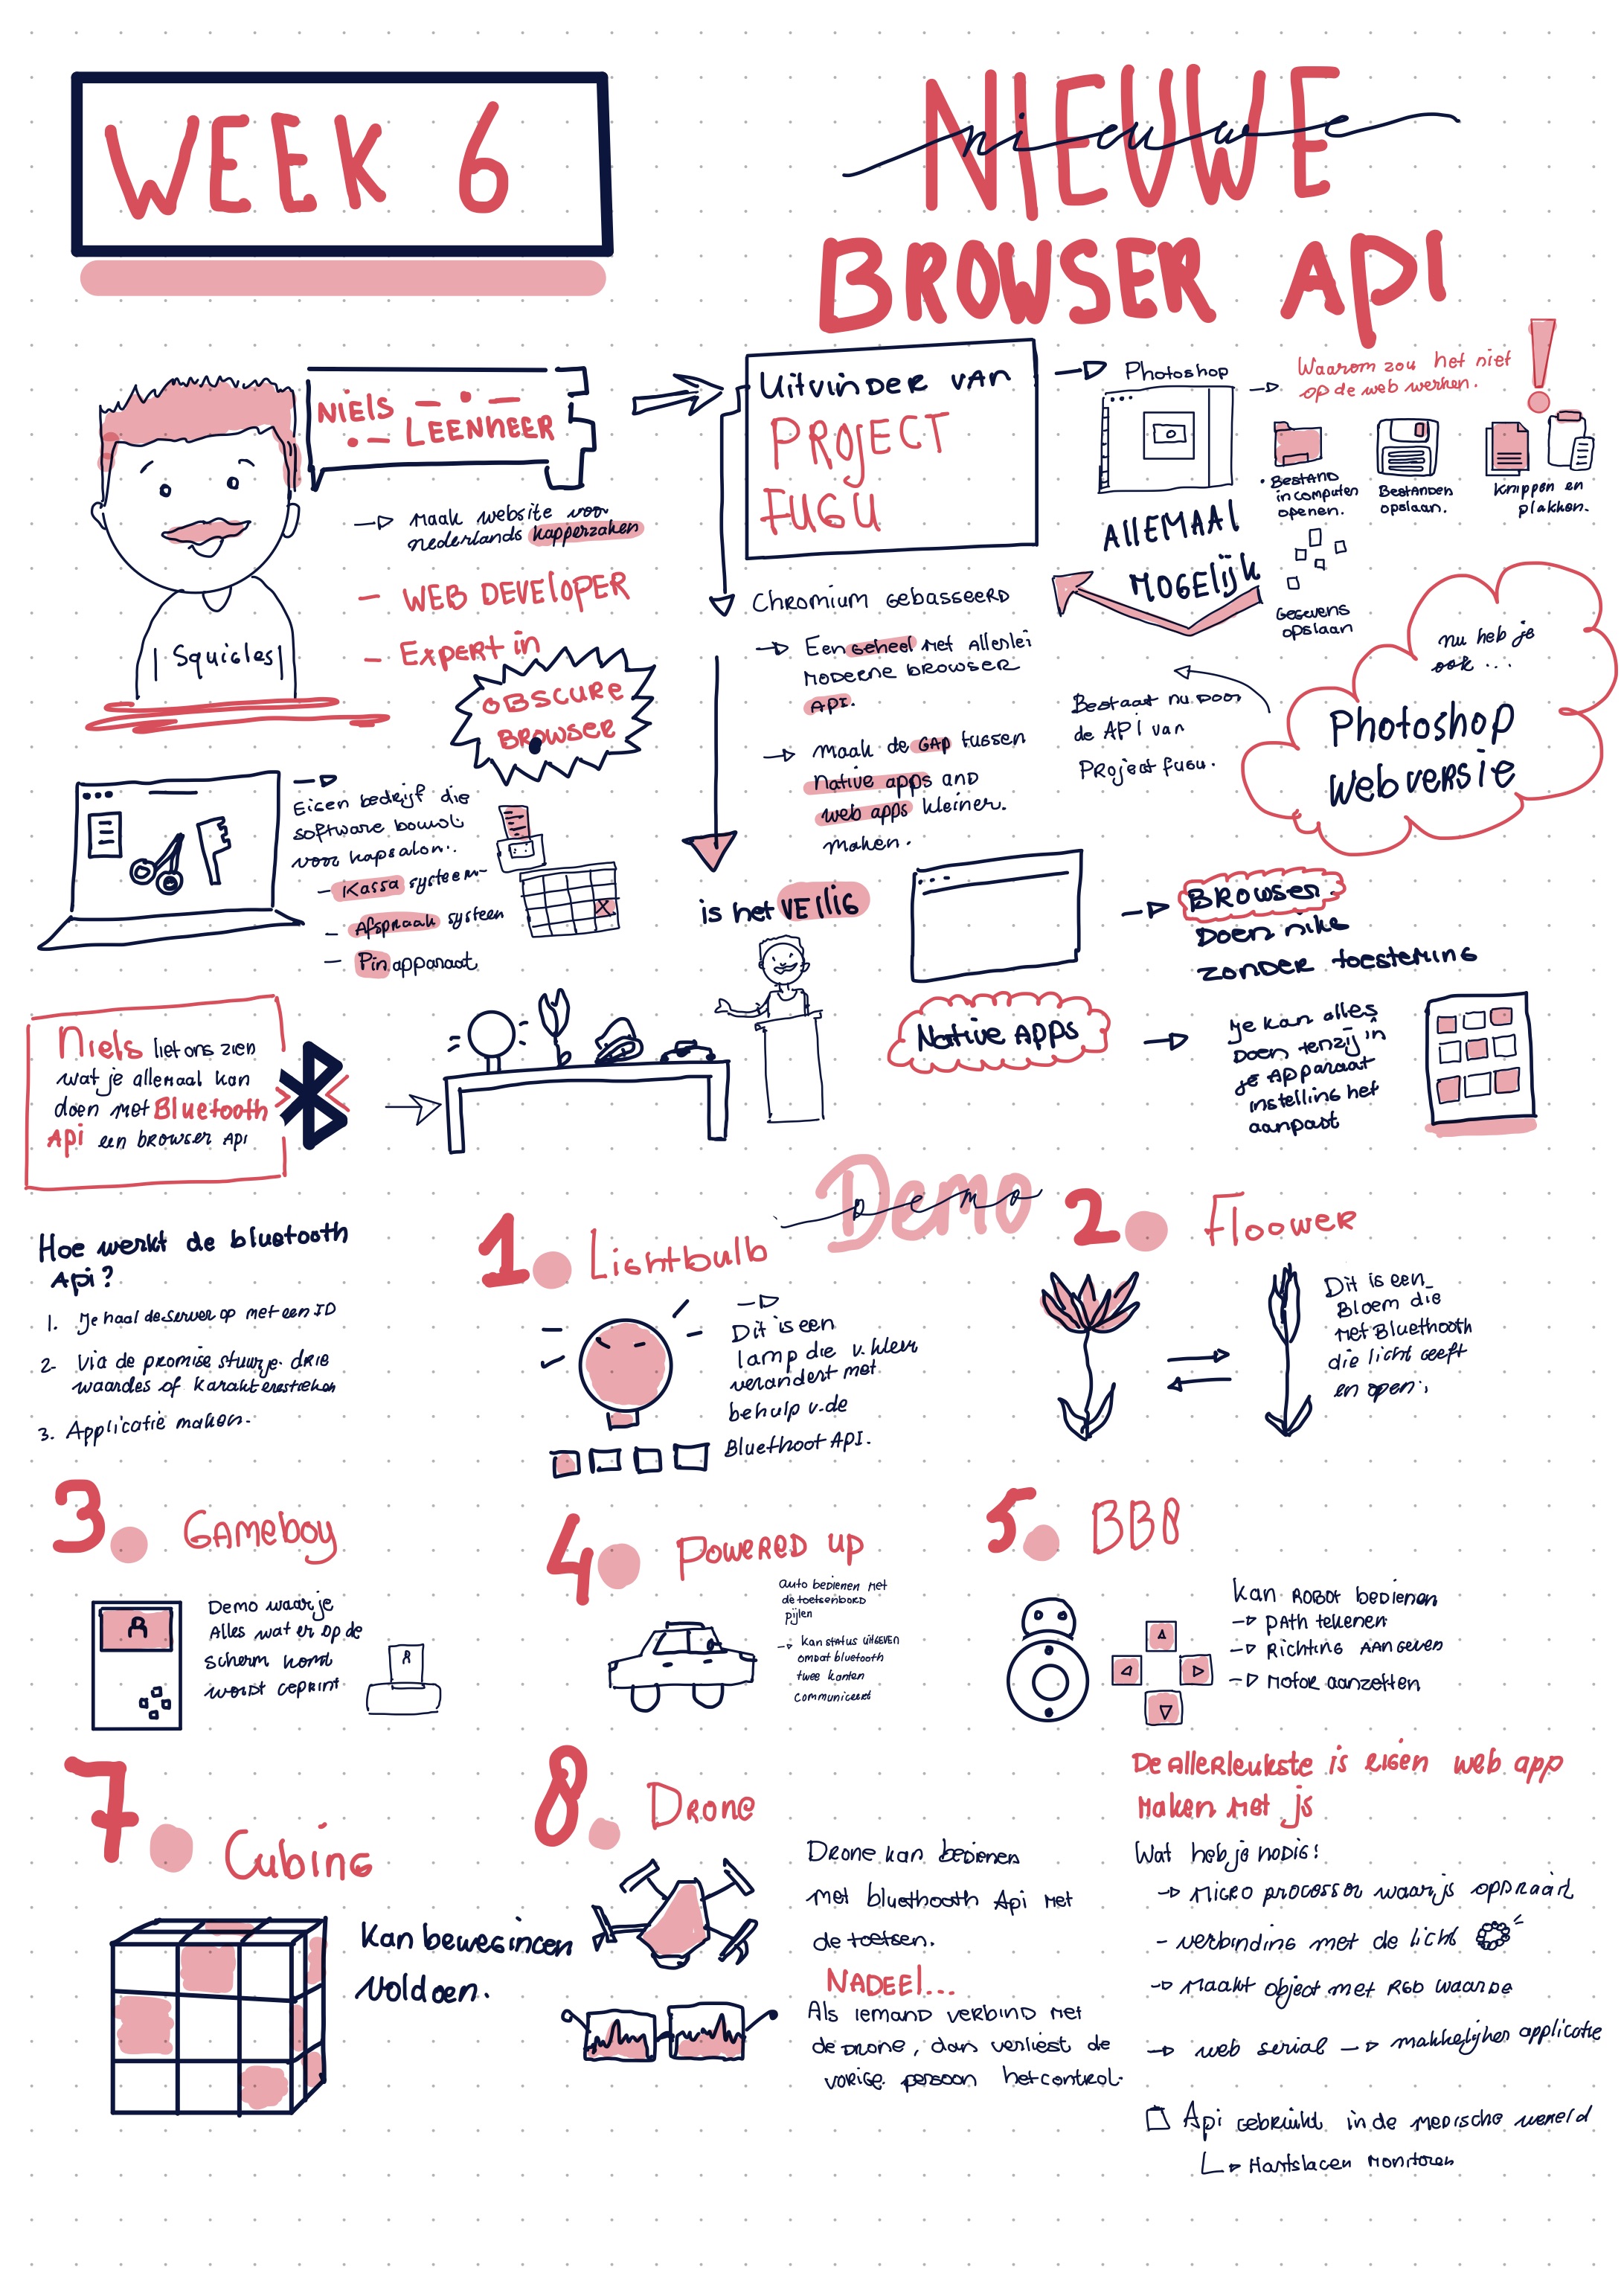 WEEK 6
NIEUWE
nieuwe
BROWSER API
NIELS
LEENHEER
Maak website voor
nederlands kapperzaken
- WEB DEVELOPER
- Expert in
OBSCURE
BROWSER
Squigles
Uitvinder van
PROJECT
FUGU
Photoshop
Waarom zou het niet
op de web werken.
Bestand
in computer
openen.
Bestanden
opslaan.
Knippen en
plakken.
Gegevens
opslaan
ALLEMAAL
MOGELIJK
Chromium Gebasseerd
Een geheel met allerlei
moderne browser
API.
Maak de GAP tussen
Native apps and
web apps kleiner.
maken.
Bestaat nu door
de API van
Project fugu.
nu heb je
ook ...
Photoshop
Webversie
Eigen bedrijf die
software bouwt
voor kapsalon.
- Kassa systeem
- Afspraak systeen
- Pin apparaat
is het VEILIG
BROWSER.
Doen niks
zonder toesteming
Native Apps
Je kan alles
Doen tenzij in
je Apparaat
instelling het
aanpast
Niels liet ons zien
wat je allemaal kan
doen met Bluetooth
Api een browser API
Demo
Demo
Hoe werkt de bluetooth
Api?
1. Je haal de server op met een ID
2. Via de promise stuur je drie
waardes of karakterestieken
3. Applicatie maken.
1. Lichtbulb
Dit is een
lamp die v. kleur
verandert met
behulp v.de
Bluethoot API.
2. Floower
Dit is een
Bloem die
met Bluethooth
die licht geeft
en open.
3. Gameboy
Demo waar je
Alles wat er op de
scherm komt
wordt geprint
4. Powered up
auto bedienen met
de toetsenbord
pijlen
kan status uitgeven
omdat bluetooth
twee kanten
communiceert
5. BB8
Kan ROBOT bedienen
PATH tekenen
Richting AAN geven
Motor aanzetten
7. Cubing
Kan bewegingen
voldoen.
8. Drone
Drone kan bedienen
met bluethooth Api met
de toetsen.
NADEEL...
Als iemand verbind met
de drone, dan verliest de
vorige persoon het control.
De Allerleukste is eigen web app
Maken met js
Wat heb je nodig!
Micro processor waar js opdraait
- verbinding met de licht
Maakt object met RGB waarde
web serial makkelijker applicatie
Api gebruikt in de medische wereld
Hartslagen monitoren